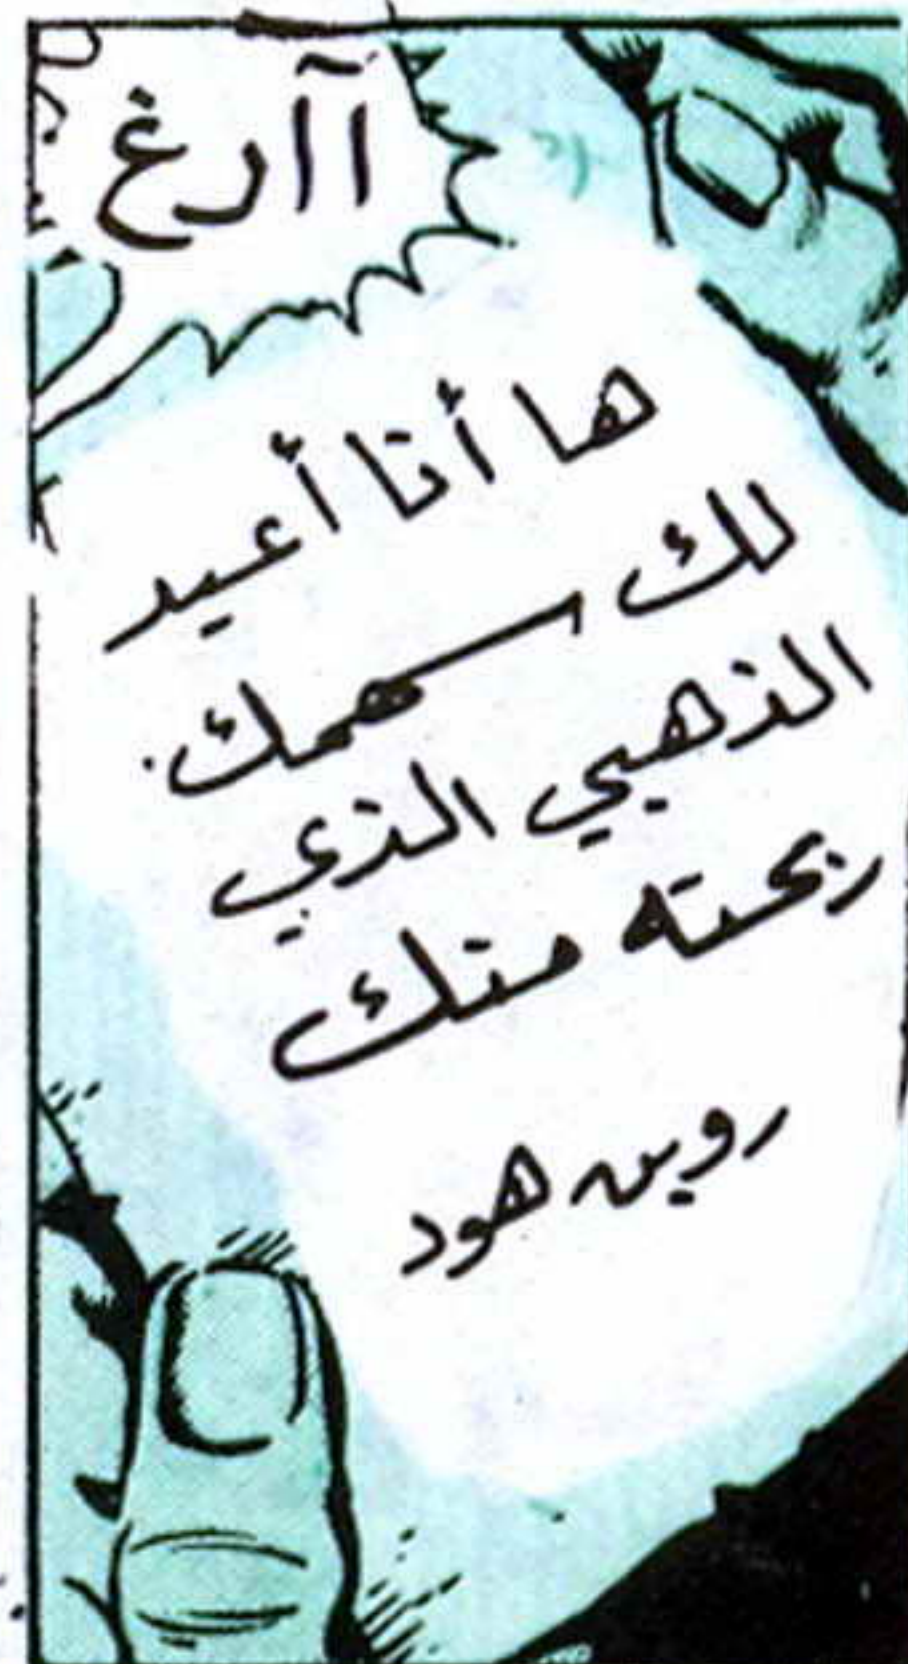 آآرغ
ها أنا أعيد
لك سهمك
الذهبي الذي
ربحته منك
روبن هود